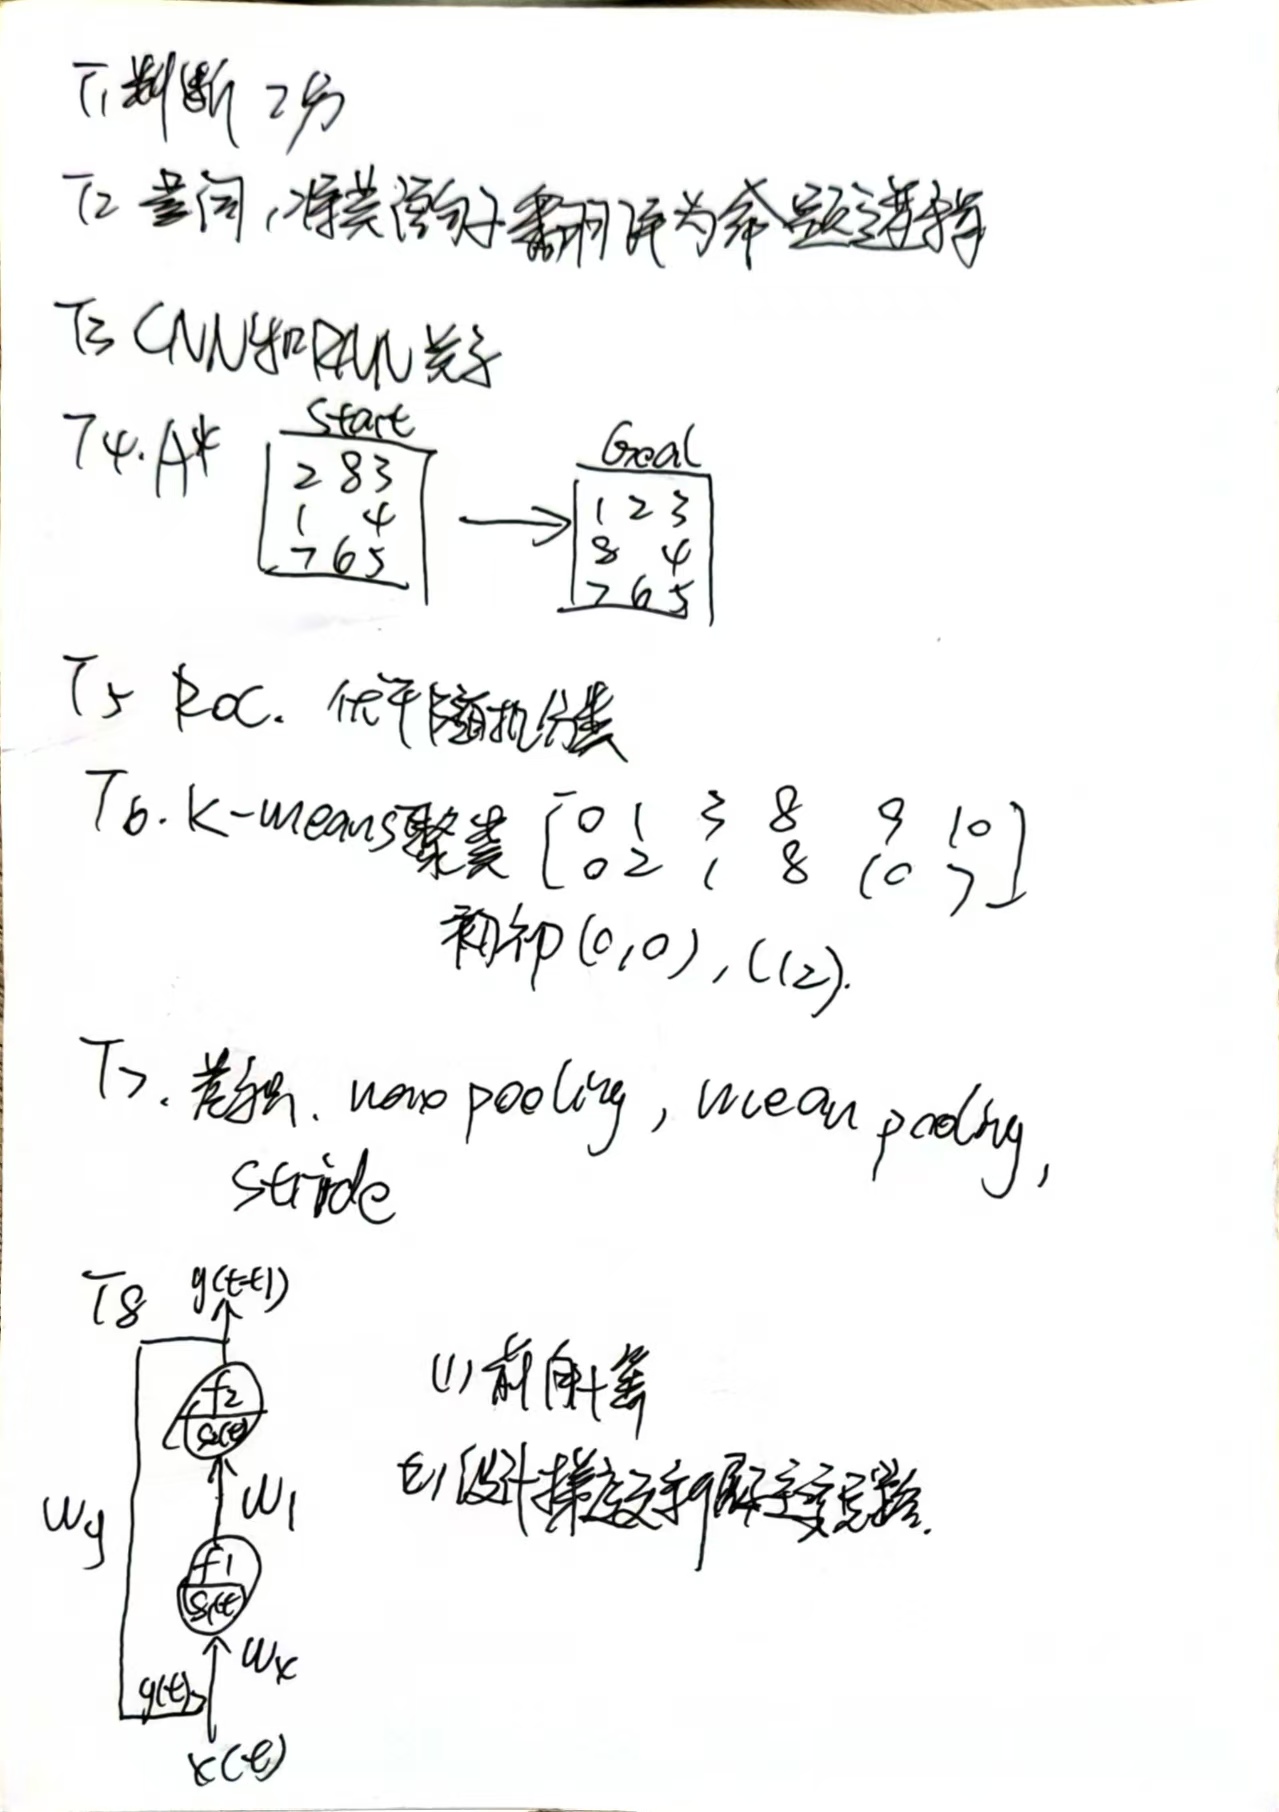 T1 判断 2分
T2 查询,将英语句子翻译为命题逻辑
T3 CNN和RNN关系
T4. A*
Start
2 8 3
1 4
7 6 5
Goal
1 2 3
8 4
7 6 5
T5 ROC. 优于随机分类
T6. K-means聚类 [0 1 3 8 9 10
0 2 1 8 10 7]
初始(0,0), (1,2).
T7. 卷积、max pooling, mean pooling,
stride
T8 y(t+1)
f2
S2(t)
W1
Wy
f1
S1(t)
Wx
y(t)
x(t)
(1) 前向计算
(2) 设计梯度